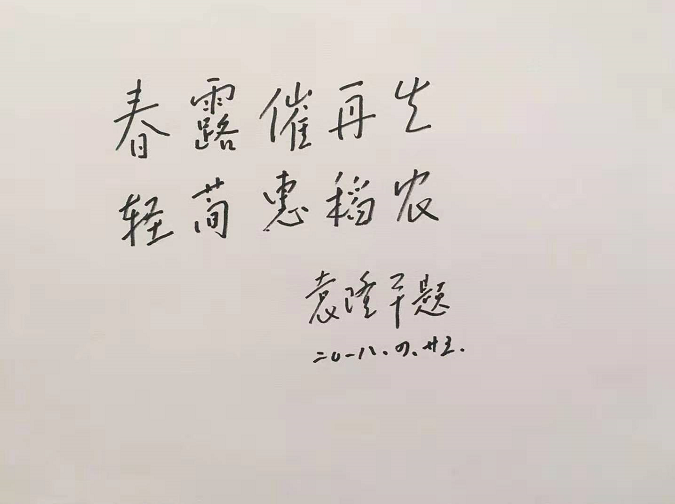 春露催再生
轻简惠稻农
袁隆平题
二〇一八.四.廿三.